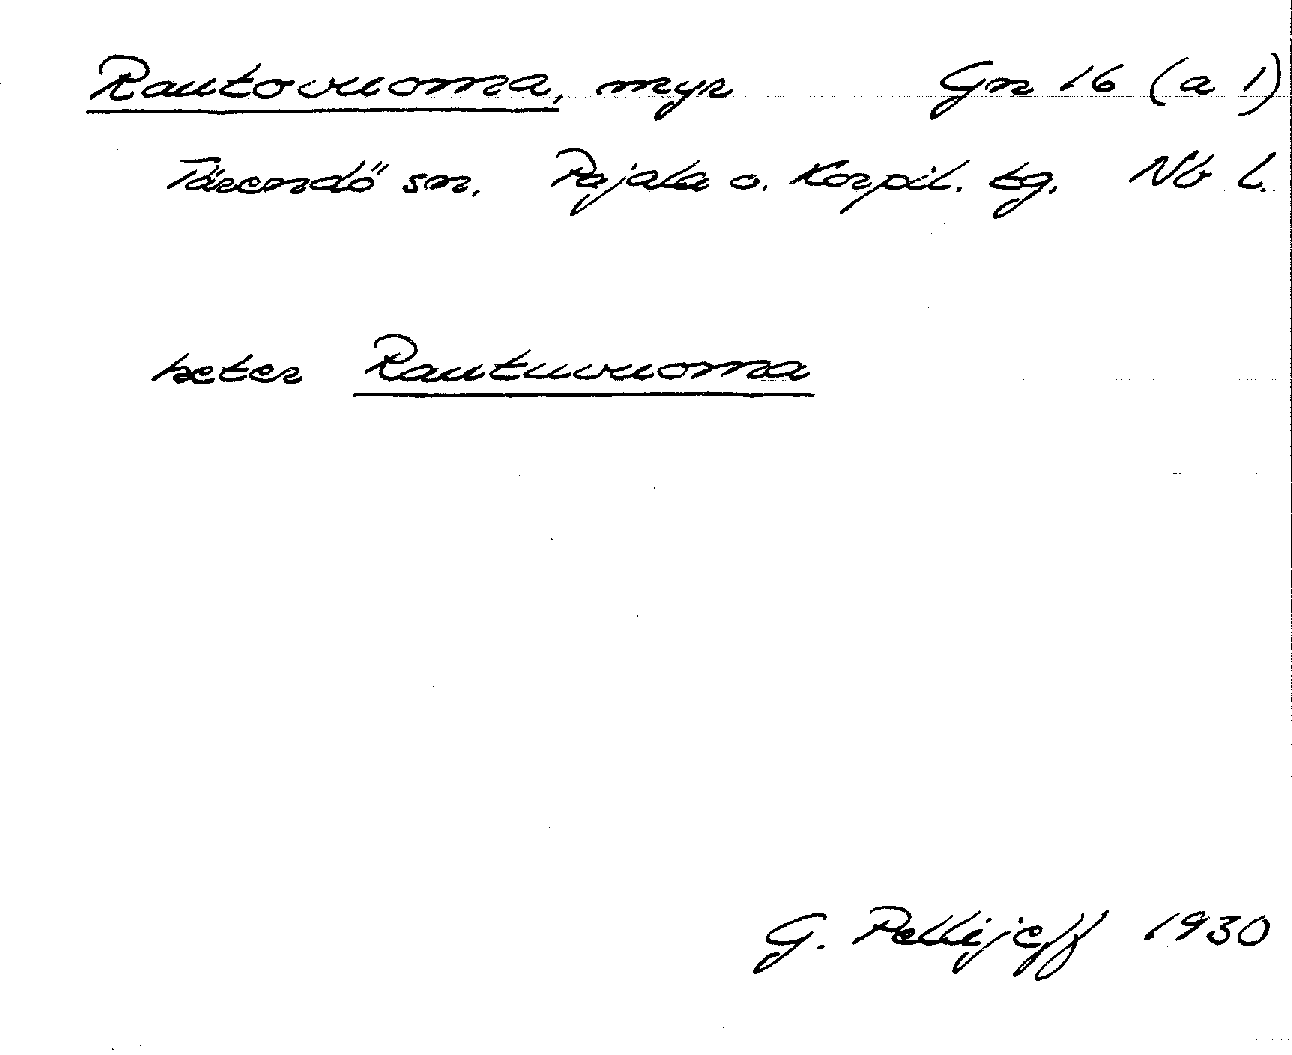 Rautovuoma, myr Gn 16 (a 1)
Tärendö sn. Pajala o. Korpil. tg. Nb l.
heter Rautuvuoma
G. Pellijeff 1930